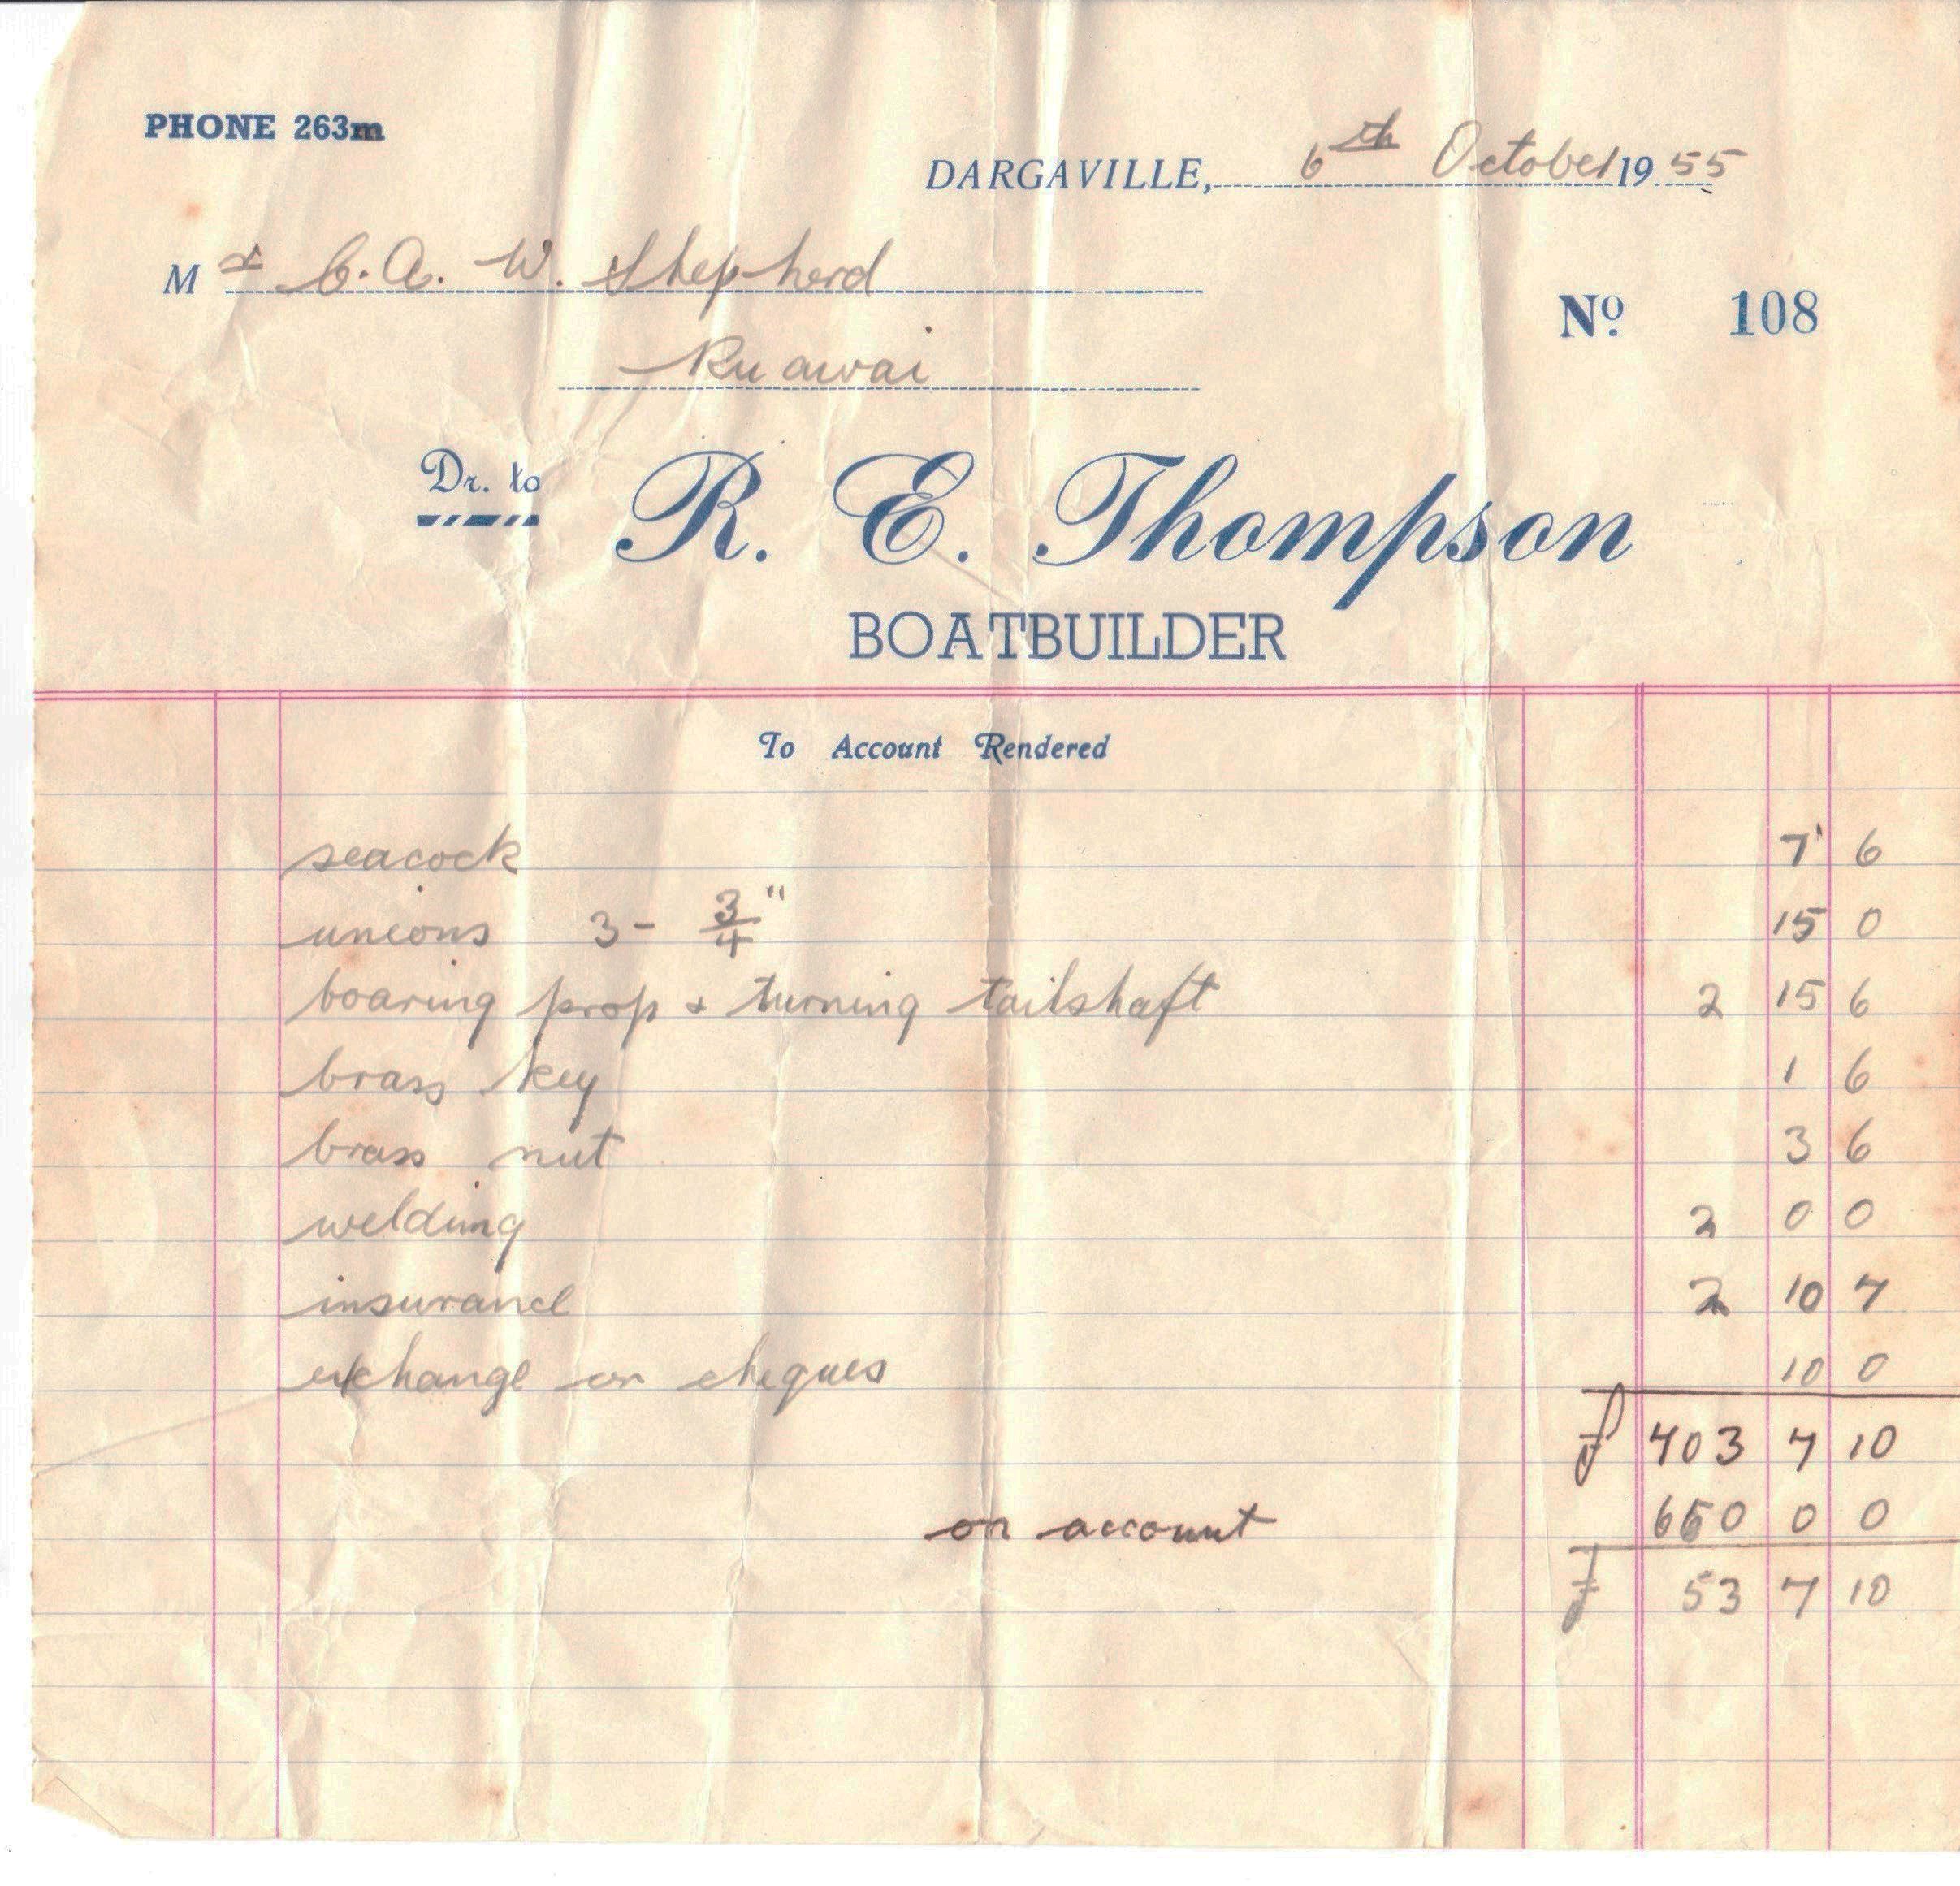 PHONE 263m
DARGAVILLE, 6th October 1955
Mr C. A. W. Shepherd
No. 108
Ruawai
Dr. to R. E. Thompson
BOATBUILDER
To Account Rendered
seacock 7 6
unions 3 - 3/4" 15 0
boaring prop & turning tailshaft 2 15 6
brass key 1 6
brass nut 3 6
welding 2 0 0
insurance 2 10 7
exchange on cheques 10 0
£ 703 7 10
on account 650 0 0
£ 53 7 10